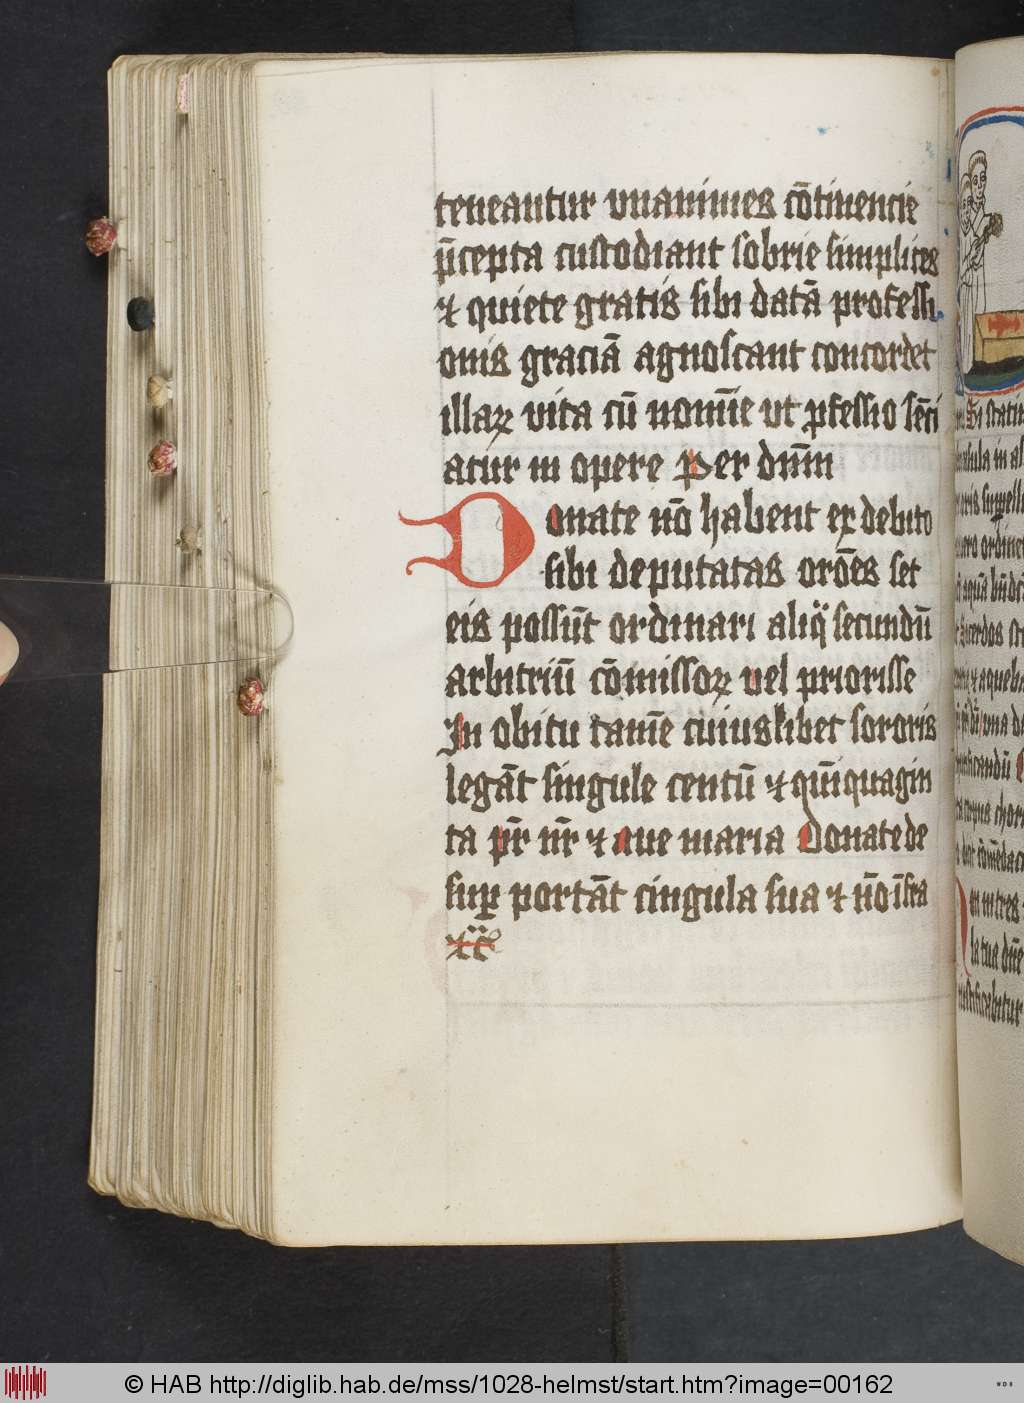 teneantur vnanimes cōtinencie
p̄cepta custodiant sobrie simplices
⁊ quiete gratis sibi datā professi
onis graciā agnoscant concordet
illaꝝ vita cū nomīe vt ꝓfessio sēti
atur in opere Per dn̄m
Donate nō habent ex debito
sibi deputatas orōes set
eis possūt ordinari aliq̈ secundū
arbitriū cōmissoꝝ uel priorisse
In obitu tamē cuiuslibet sororis
legāt singule centū ⁊ qūiquagin
ta pr̄ nr̄ ⁊ Aue maria Donate de
suꝑ portāt cingula sua ⁊ nō īfra
© HAB http://diglib.hab.de/mss/1028-helmst/start.htm?image=00162